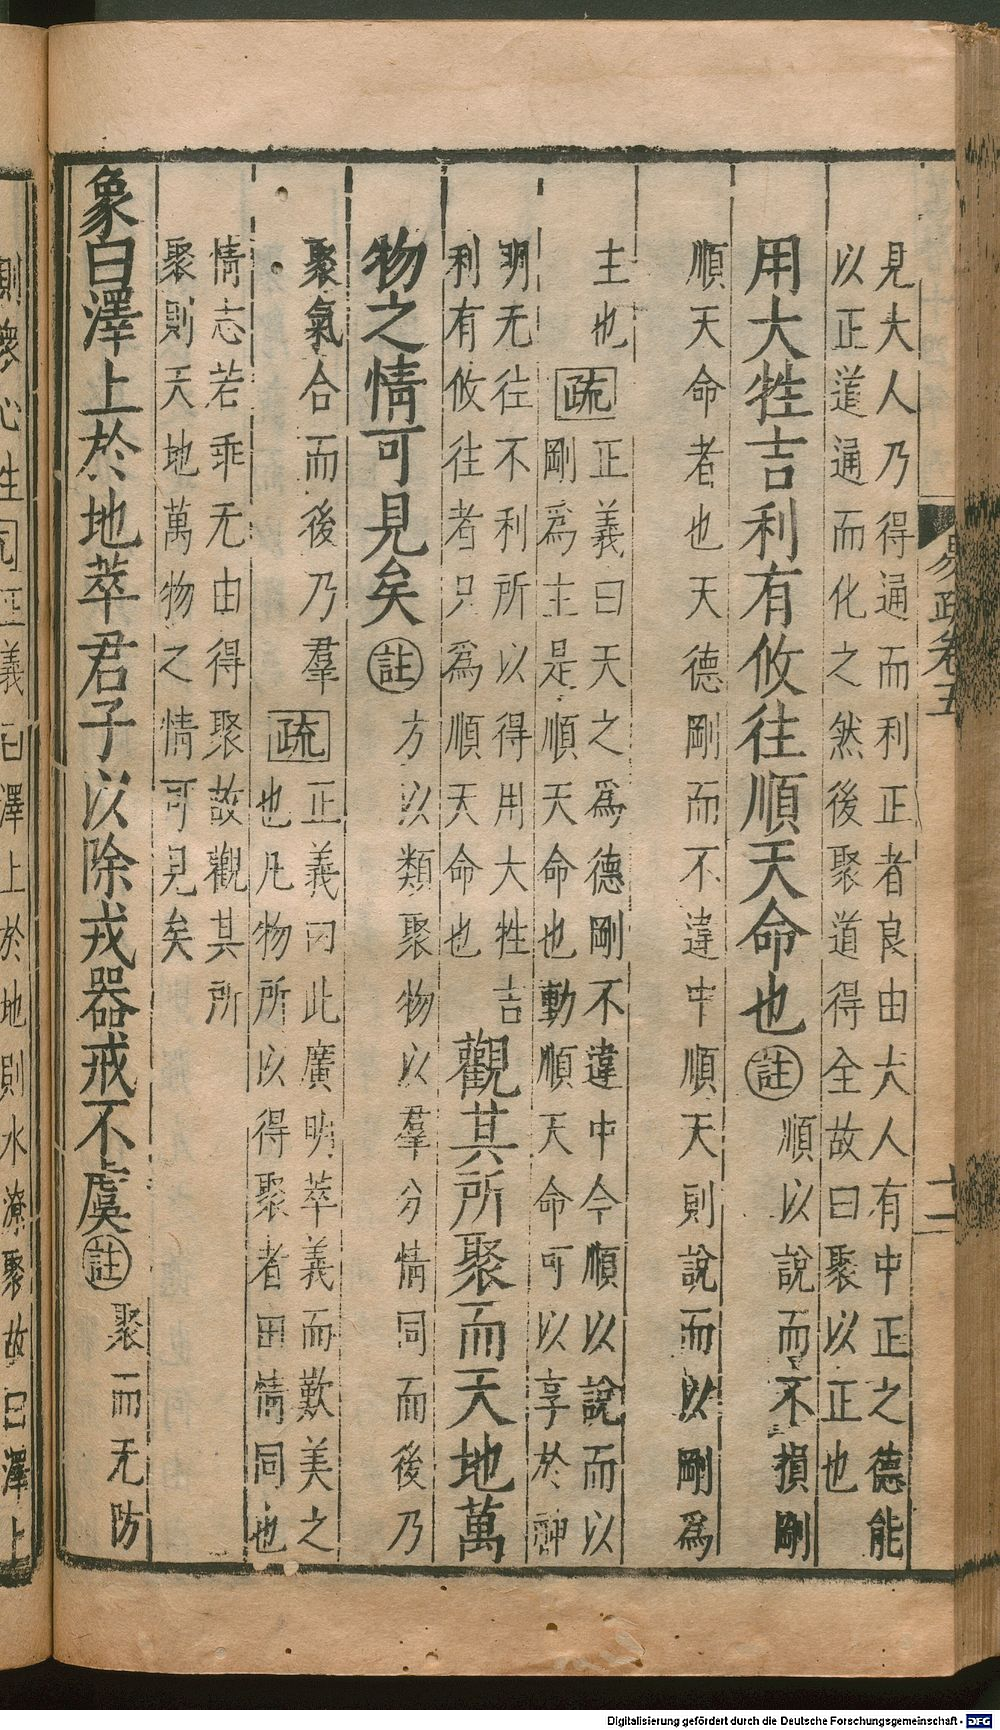 見大人乃得通而利正者良由大人有中正之德能
以正道通而化之然後聚道得全故曰聚以正也
用大牲吉利有攸往順天命也註順以說而不損剛
順天命者也天德剛而不違中順天則說而以剛爲
主也疏正義曰天之爲德剛不違中今順以說而以
剛爲主是順天命也動順天命可以享於神
明无往不利所以得用大牲吉
利有攸往者只爲順天命也
觀其所聚而天地萬
物之情可見矣註方以類聚物以羣分情同而後乃
聚氣合而後乃羣疏正義曰此廣明萃義而歎美之
也凡物所以得聚者由情同也
情志若乖无由得聚故觀其所
聚則天地萬物之情可見矣
象曰澤上於地萃君子以除戎器戒不虞註聚而无防
則衆心生疏正義曰澤上於地則水潦聚故曰澤上
易疏卷五
十二
Digitalisierung gefördert durch die Deutsche Forschungsgemeinschaft - DFG